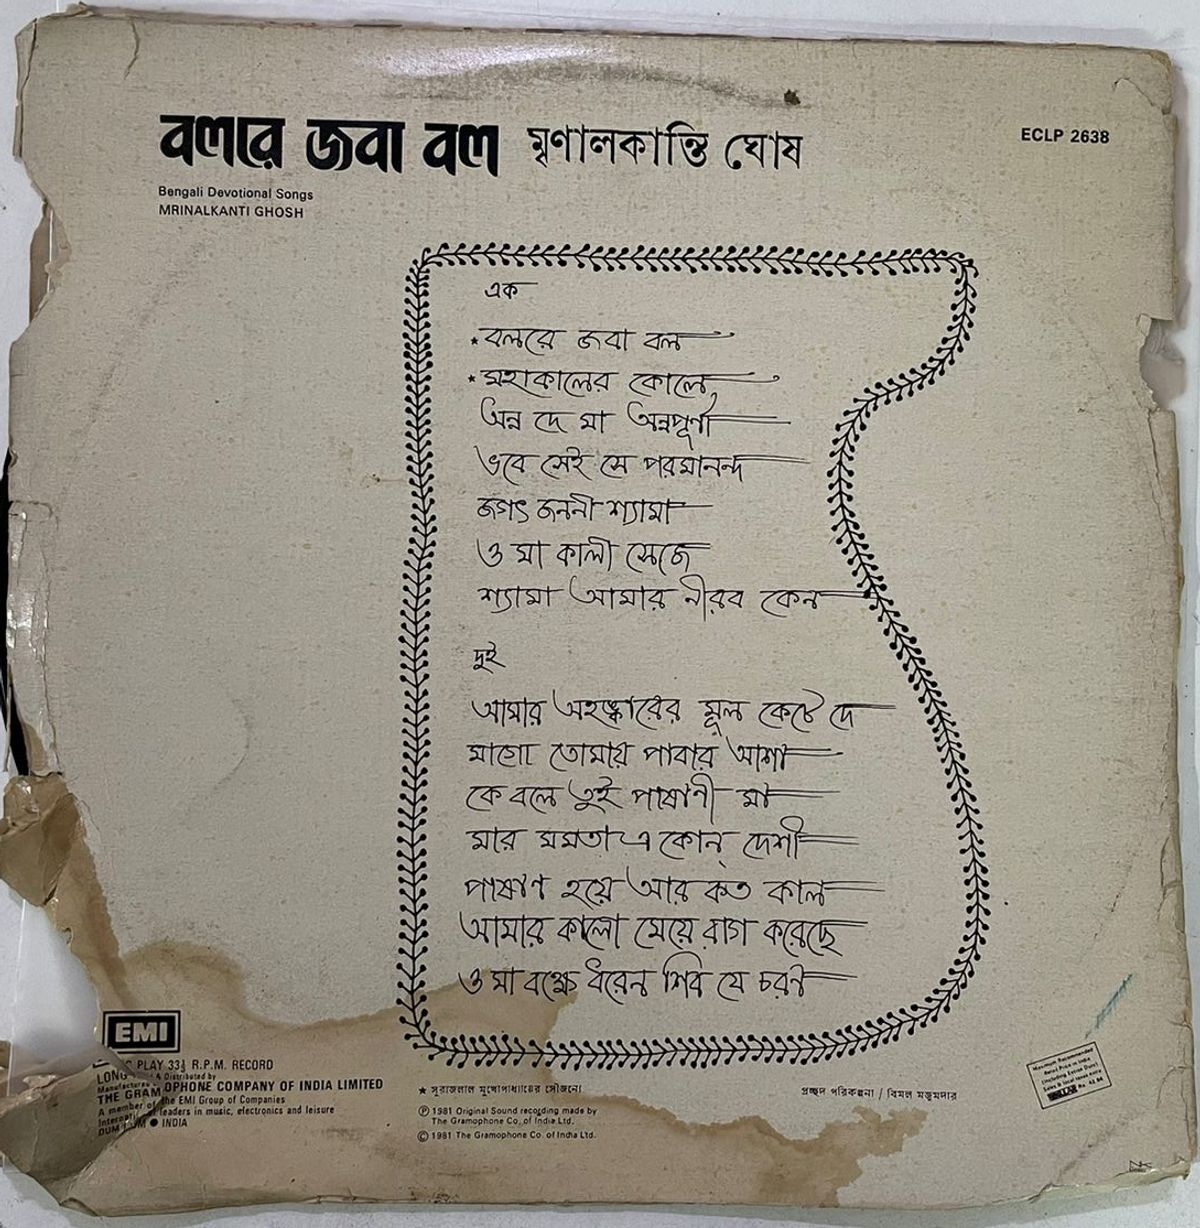 বলরে জবা বল মৃণালকান্তি ঘোষ
ECLP 2638
Bengali Devotional Songs
MRINALKANTI GHOSH
এক
★ বলরে জবা বল
★ মহাকালের কোলে
অন্ন দে মা অন্নপূর্ণা
ভবে সেই সে পরমানন্দ
জগৎ জননী শ্যামা
ও মা কালী সেজে
শ্যামা আমার নীরব কেন
দুই
আমার অহঙ্কারের মূল কেটে দে
মাগো তোমায় পাবার আশা
কে বলে তুই পাষাণী মা
মার মমতা এ কোন্ দেশী
পাষাণ হয়ে আর কত কাল
আমার কালো মেয়ে রাগ করেছে
ও মা বক্ষে ধরেন শিব যে চরণ
EMI
PLAY 33⅓ R.P.M. RECORD
LONG
Distributed by
THE GRAM OPHONE COMPANY OF INDIA LIMITED
A member of the EMI Group of Companies
leaders in music, electronics and leisure
DUM DUM ● INDIA
★ সুরাজলাল মুখোপাধ্যায়ের সৌজন্যে
Ⓟ 1981 Original Sound recording made by
The Gramophone Co. of India Ltd.
© 1981 The Gramophone Co. of India Ltd.
প্রচ্ছদ পরিকল্পনা / বিমল মজুমদার
Maximum Recommended
Retail Price in India